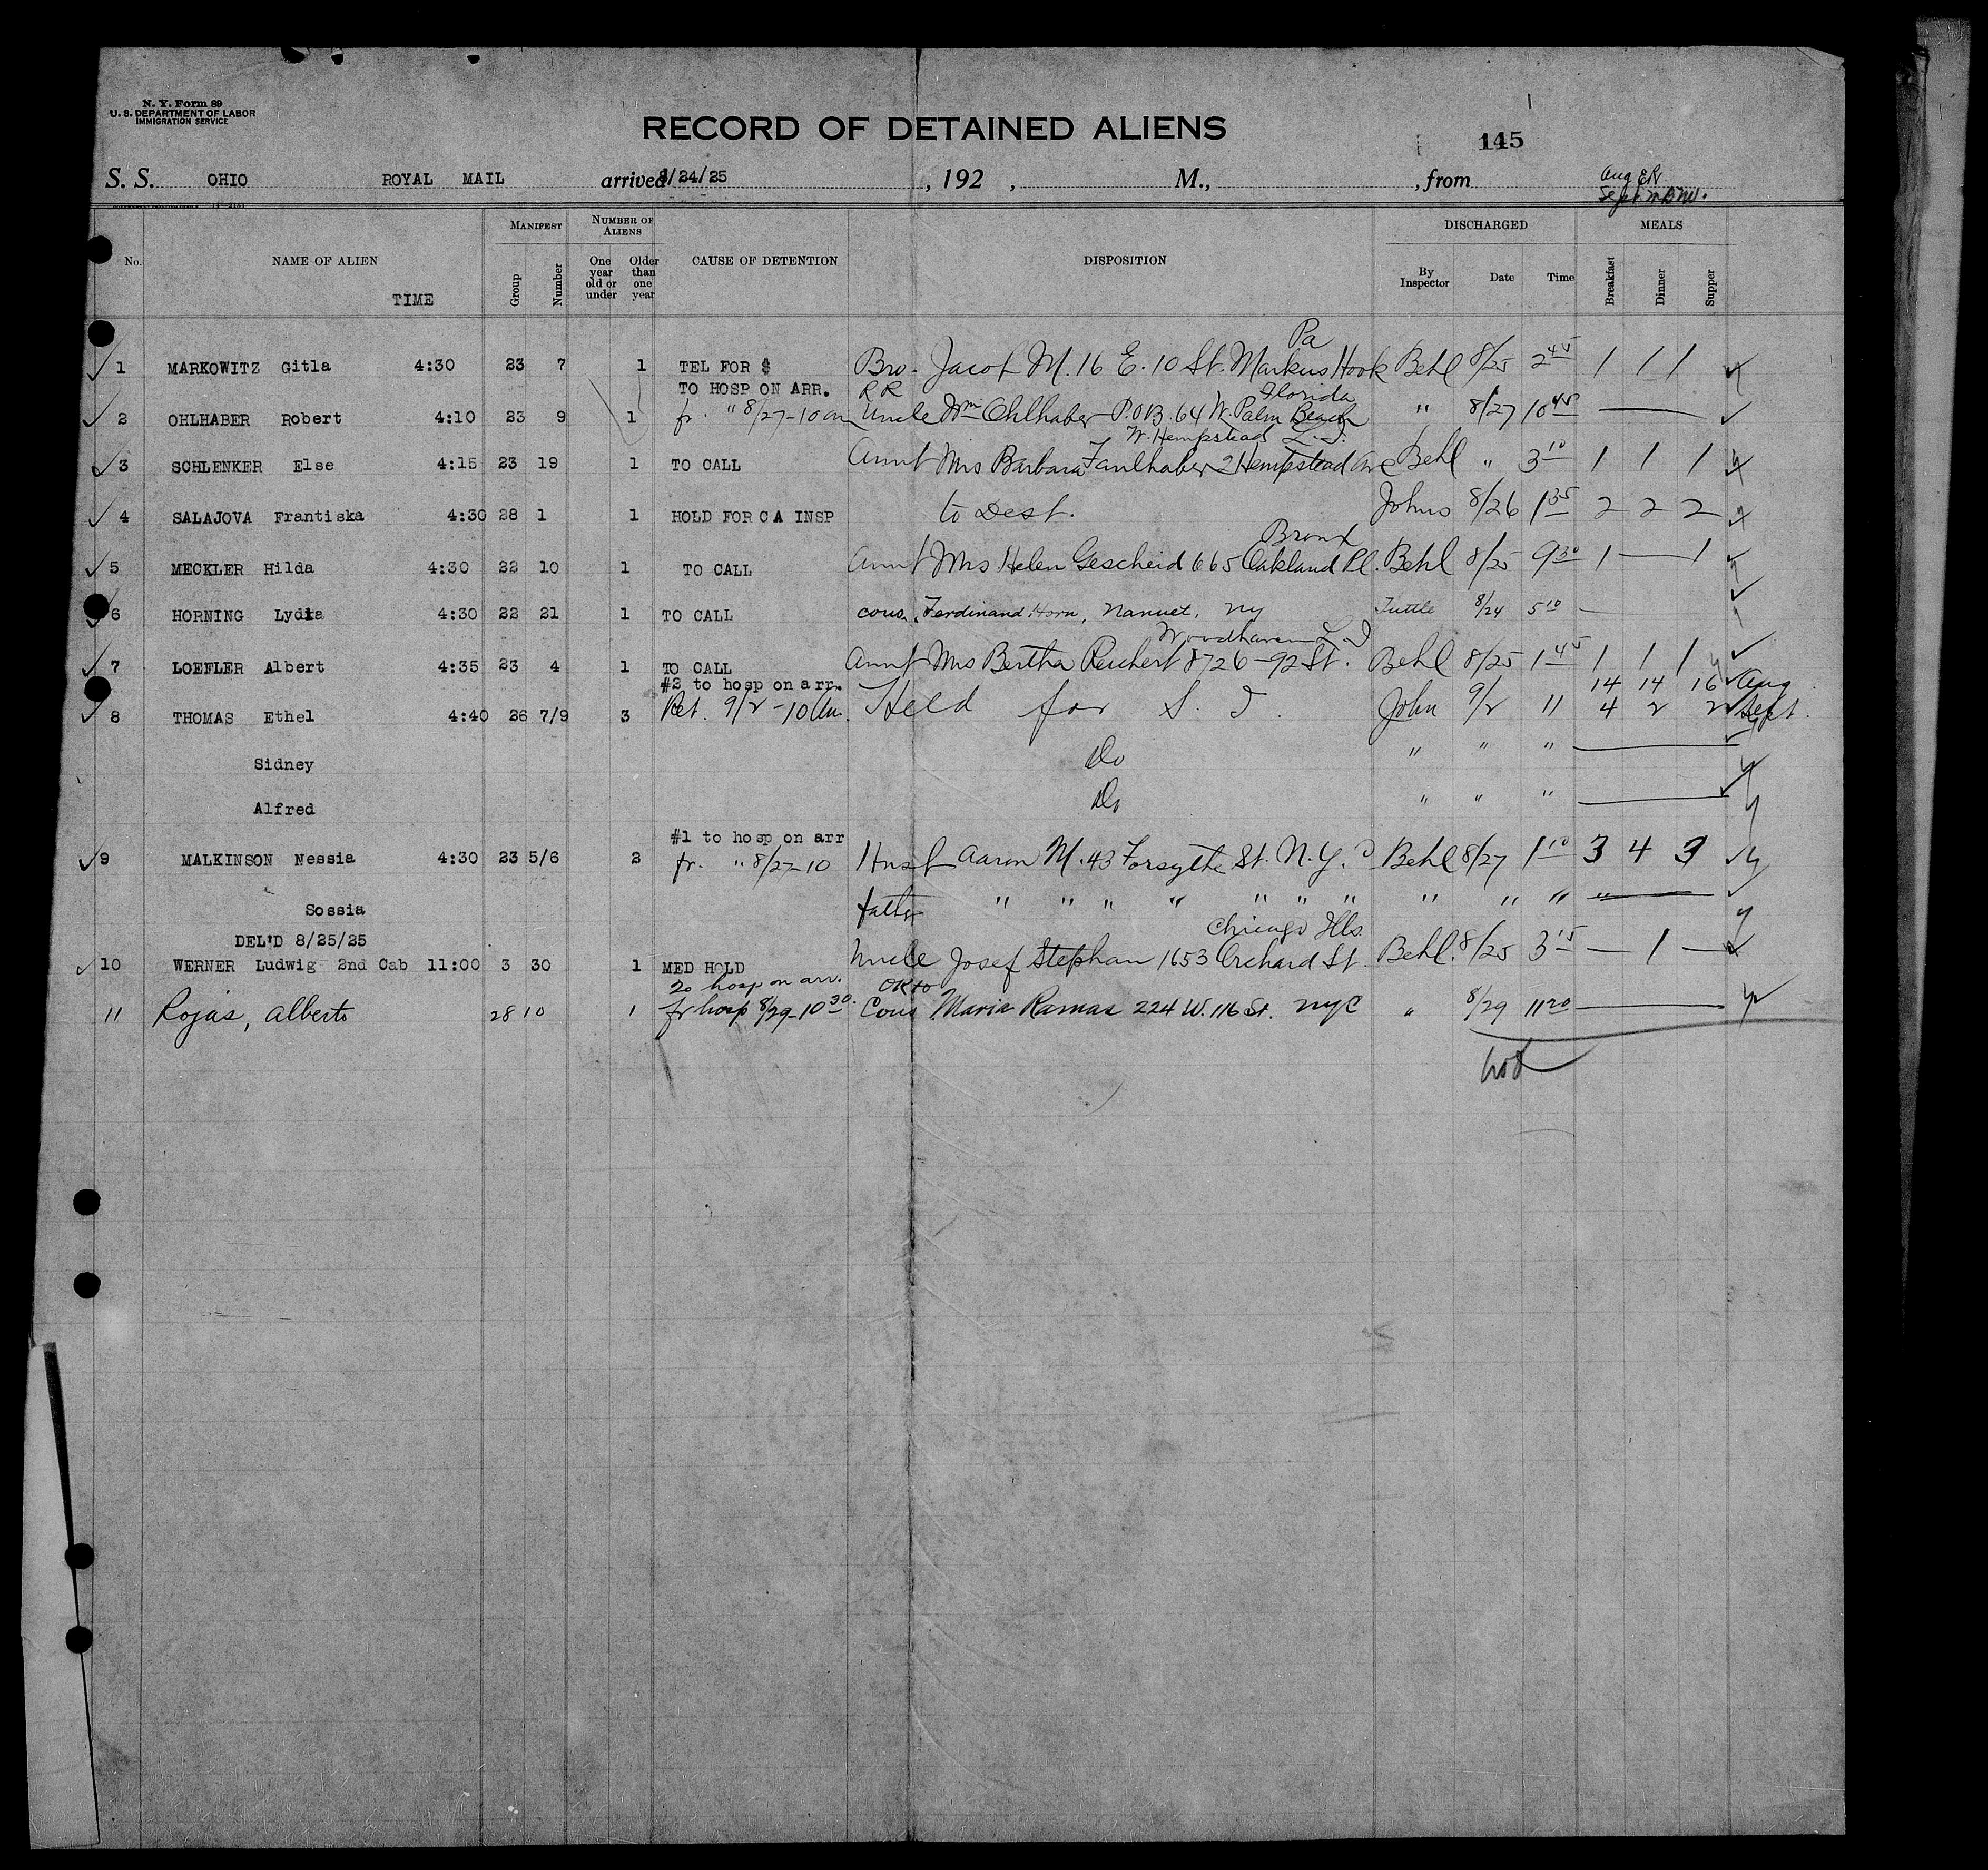 N. Y. Form 89
U. S. DEPARTMENT OF LABOR
IMMIGRATION SERVICE
RECORD OF DETAINED ALIENS
145
S. S. OHIO ROYAL MAIL arrived 8/24/25, 192 , M., , from Aug
Sept
No. NAME OF ALIEN TIME MANIFEST Group Number NUMBER OF ALIENS One year old or under Older than one year CAUSE OF DETENTION DISPOSITION DISCHARGED By Inspector Date Time MEALS Breakfast Dinner Supper
Pa
1 MARKOWITZ Gitla 4:30 23 7 1 TEL FOR $ Bro. Jacob M. 16 E. 10 St. Markus Hook Behl 8/25 2 45 1 1 1
TO HOSP ON ARR. R R Florida
2 OHLHABER Robert 4:10 23 9 1 fr. " 8/27-10 am Uncle Wm Ohlhaber P.O.B. 64 W. Palm Beach " 8/27 10 45
W. Hempstead L. I.
3 SCHLENKER Else 4:15 23 19 1 TO CALL Aunt Mrs Barbara Faulhaber 2 Hempstead Ave Behl " 3 10 1 1 1
4 SALAJOVA Frantiska 4:30 28 1 1 HOLD FOR C A INSP to Dest. Johns 8/26 1 35 2 2 2
Bronx
5 MECKLER Hilda 4:30 22 10 1 TO CALL Aunt Mrs Helen Gescheid 665 Oakland Pl. Behl 8/25 9 30 1 — 1
6 HORNING Lydia 4:30 22 21 1 TO CALL cous. Ferdinand Horn, Nanuet, NY Tuttle 8/24 5 10 —
Woodhaven L I
7 LOEFLER Albert 4:35 23 4 1 TO CALL Aunt Mrs Bertha Reichert 8726-92 St. Behl 8/25 1 45 1 1 1
#2 to hosp on arr. 14 14 16 Aug
8 THOMAS Ethel 4:40 26 7/9 3 Ret. 9/2-10 am. Held for S. I. John 9/2 11 4 2 2 Sept.
Sidney Do " " "
Alfred Do " " "
#1 to hosp on arr
9 MALKINSON Nessia 4:30 23 5/6 2 fr. " 8/27-10 Husb Aaron M. 43 Forsythe St. N. Y. C Behl 8/27 1 10 3 4 3
Sossia father " " " " " " " " " " " "
DEL'D 8/25/25 Chicago Ills.
10 WERNER Ludwig 2nd Cab 11:00 3 30 1 MED HOLD Uncle Josef Stephan 1653 Orchard St. Behl. 8/25 3 15 — 1 —
To hosp on arr. OK to
11 Rojas, Alberto 28 10 1 fr hosp 8/29-10 30. Cous Maria Ramas 224 W. 116 St. NYC " 8/29 11 20